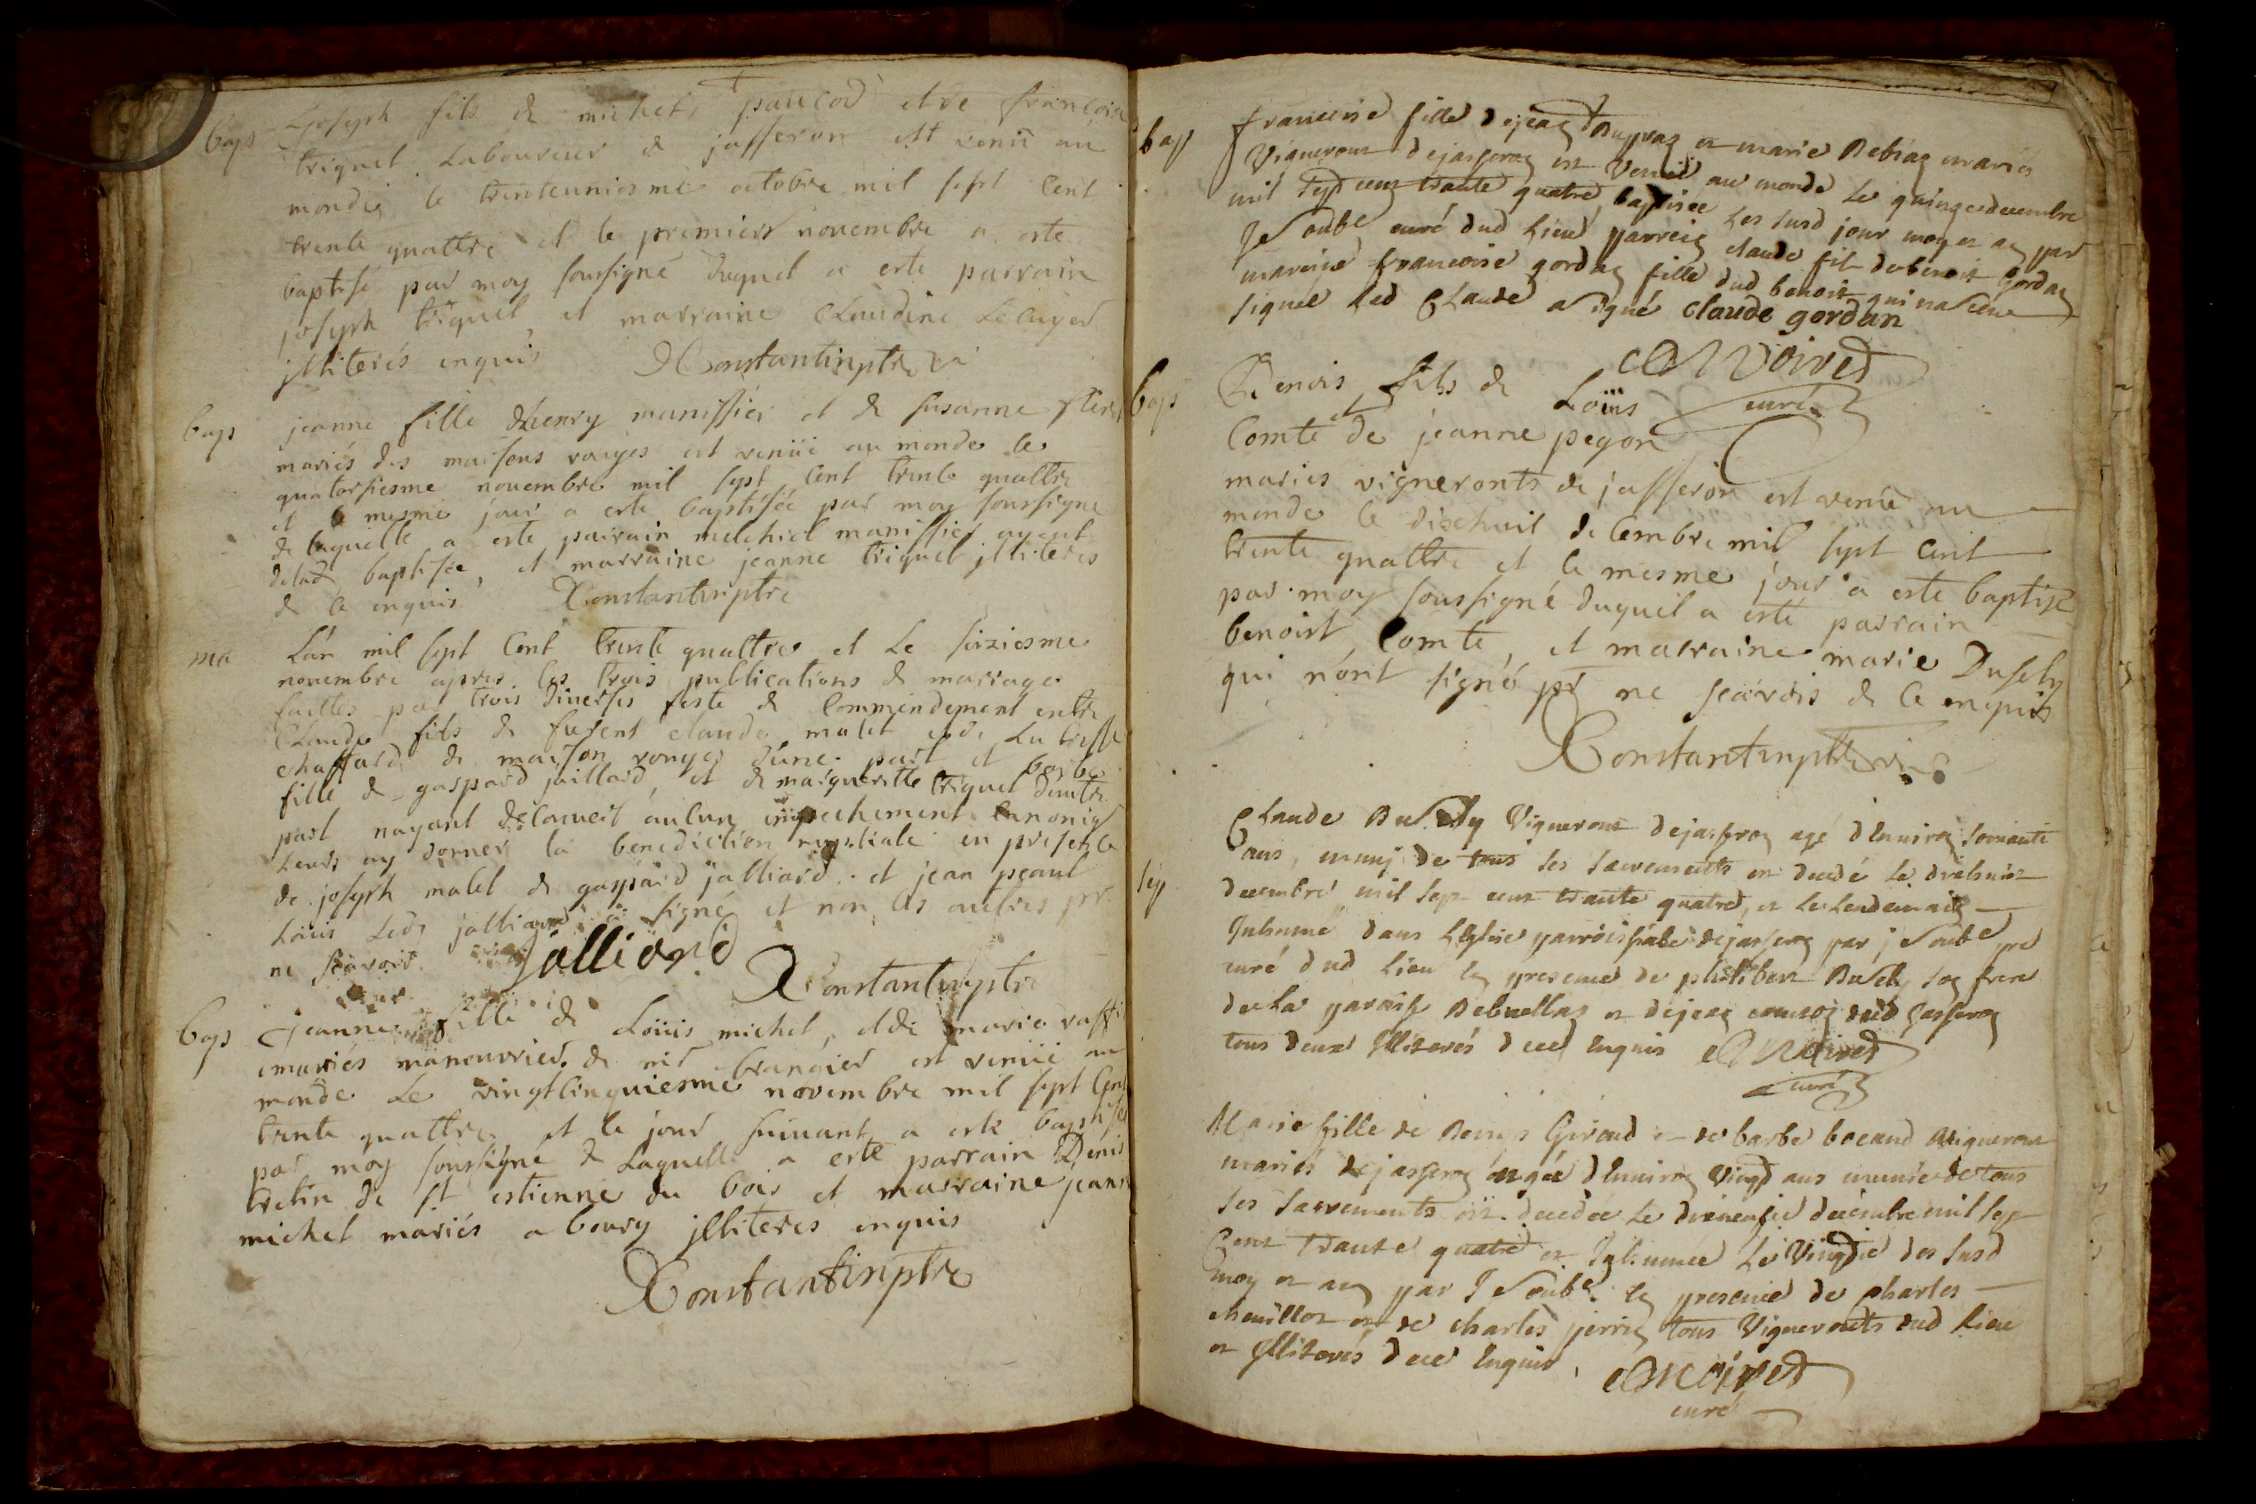 bap Joseph fils de michel paucod et de francoise
triquet Laboureur de jasseron est venü au
monde le trenteuniesme octobre mil sept cent
trente quattre et le premiers novembre a este
baptisé par moy soussigné duquel a este parrain
joseph triquet et marraine Claudine
jlliterés enquis Constantin ptre
bap jeanne fille dhenry manissier et de susanne
mariés des maisons rouges est venüe au monde le
quatorsiesme novembre mil sept cent trente quattre
et le mesme jour a este baptisée par moy soussigné
de laquelle a este parrain melchiel manissier
delad baptisée, et marraine jeanne triquet jlliteres
de ce enquis Constantin ptre
ma Lan mil sept cent trente quattre et Le seiziesme
novembre apres les trois publications de mariage
faittes par trois diverses feste de Commendement entre
Claude fils de claude malet et de
chaffard de maison rouges dúne part et barbe
fille de gaspard jaillard, et de margueritte triquet dautre
part nayant découvert aucun empechement canonique
Leurs ay donner la benediction nuptiale en presence
de joseph malet de gaspard jalliard et jean peaul
Loüis Led jalliard a signé et non les aultres pr
ne scavoir jalliard
Constantin ptre
bap jeanne fille de Loüis michel, et de marie
mariés manouvrier de nit brangier est venüe au
monde Le vingtcinquiesme novembre mil sept Cent
trente quattre et le jour suivant a este baptisée
par moy soussigné de Laquelle a esté parrain Denis
tretin de st estienne du bois et marraine jeanne
michel mariés a bourg jlliteres enquis
Constantin ptre
bap francoise fille dejean Dupras et marie Debras mariés
Vignerons dejasseron est Venüe au monde Le quinze decembre
mil sept cent trante quatre baptisée Les susd jour moy et an par
Je soube curé dud Lieu parrein claude fils debenoit gordan
mareine francoise gordan fille dud benoit qui na sceu
signer Led Claude a signé claude gordan
curé
bap Denois fils de Loüis
Comte et de jeanne pegon
mariés vigneronts de jasseron est venü au
monde le dixehuit decembre mil sept cent
trente quattre et le mesme jour a este baptisé
par moy soussigné duquel a esté parrain
benoist Comte, et marraine marie Dufely
qui nónt signé pr ne scavoir de ce enquis
Constantin ptre
sep Claude Vigneront dejasseron agé dEnviron soixante
ans, muny de tous les sacrements est decedé Le dixhuit
decembre mil sept cent trante quatre, et Le Lendemain
Inhumé dans LEglise parroissiale dejasseron par je soube
curé dud Lieu en presence de philibert son frere
de La paroisse et dejean dud jasseron
tous deux Illiterés dece Enquis
curé
Marie fille de Denis Giroud et de barbe Vigneront
mariés dejasseron agée dEnviron Vingt ans munie de tous
les sacrements est decedée Le dixneufie decembre mil sept
Cent trante quatre et Inhumée Le Vingtie des susd
moy et an par Je soube en presence de charles
chevillot et de charles perrin tous Vigneronts dud Lieu
et Illiterés dece Enquis
curé